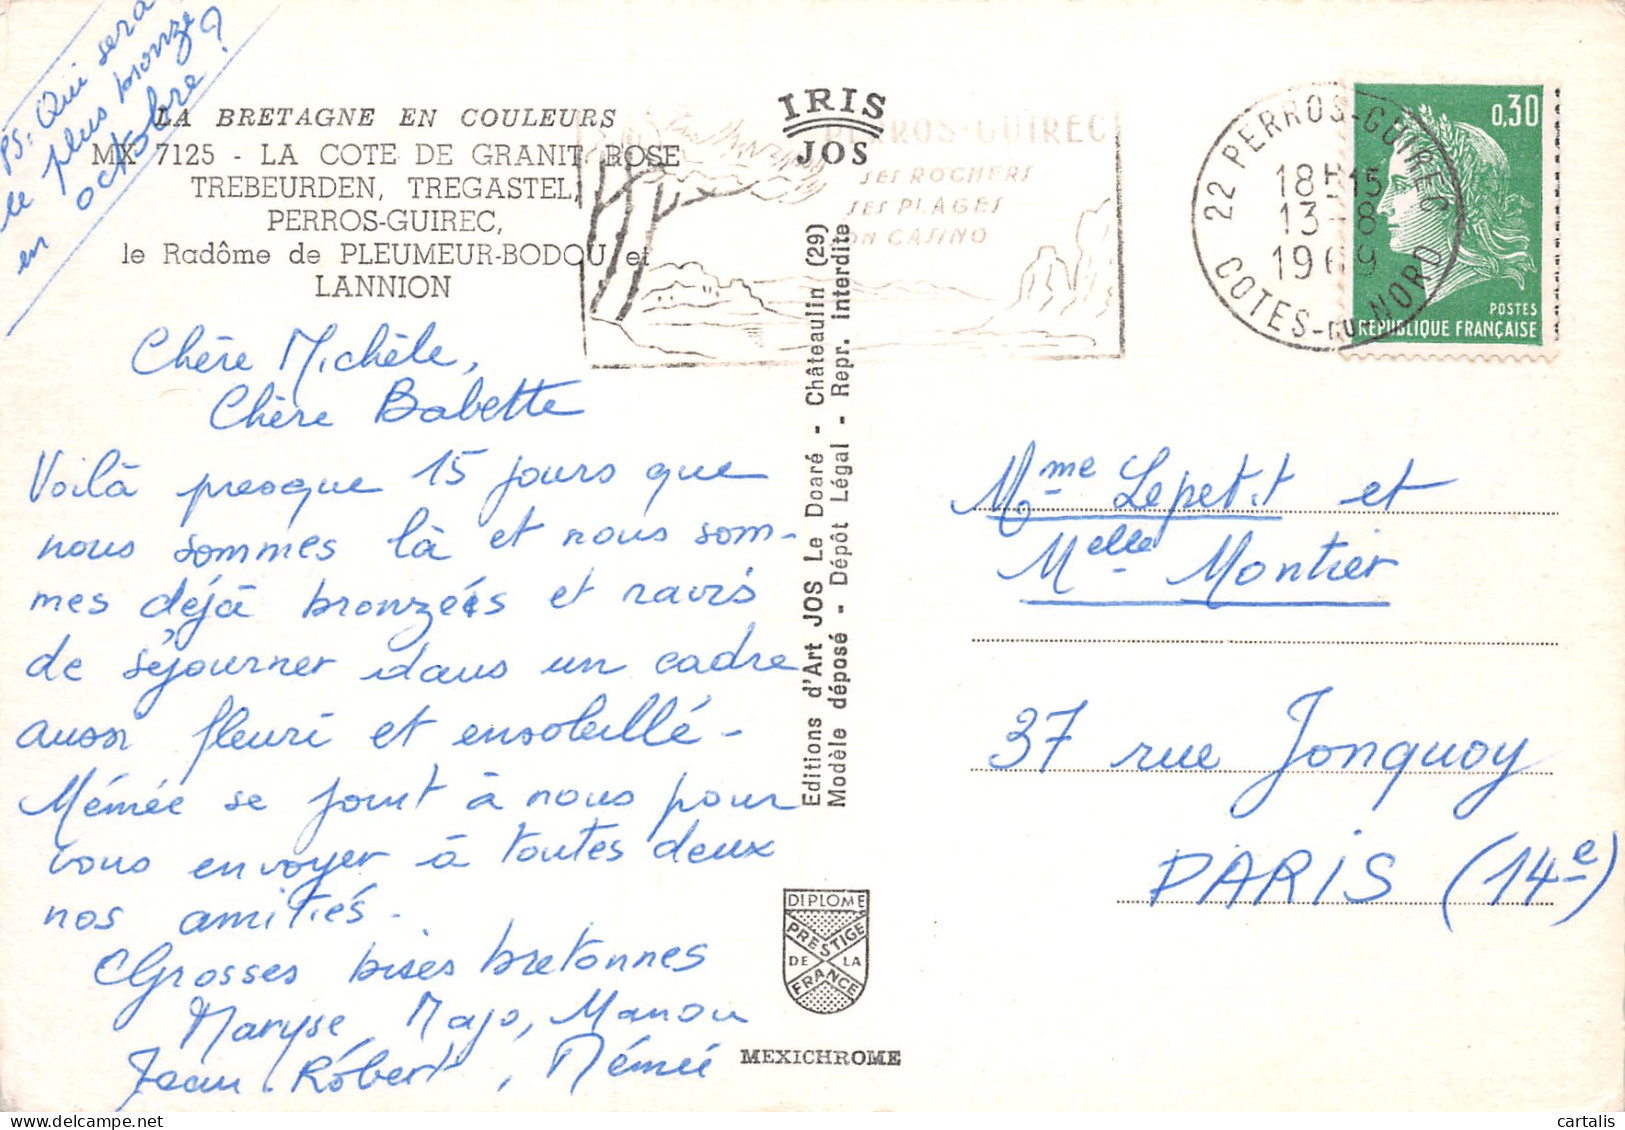 PS: Qui sera
le plus bronzé
en octobre ?
LA BRETAGNE EN COULEURS
MX 7125 - LA COTE DE GRANIT ROSE
TREBEURDEN, TREGASTEL,
PERROS-GUIREC,
le Radôme de PLEUMEUR-BODOU et
LANNION
Chère Michèle,
Chère Babette
Voilà presque 15 jours que
nous sommes là et nous som-
mes déjà bronzés et ravis
de séjourner dans un cadre
aussi fleuri et ensoleillé -
Mémée se joint à nous pour
vous envoyer à toutes deux
nos amitiés -
Grosses bises bretonnes
Maryse, Majo, Manou
Jean-Robert, Mémée
IRIS
JOS
PERROS-GUIREC
SES ROCHERS
SES PLAGES
SON CASINO
Editions d'Art JOS Le Doaré - Châteaulin (29)
Modèle déposé - Dépôt Légal - Repr. interdite
DIPLOME
PRESTIGE
DE LA
FRANCE
MEXICHROME
22 PERROS-GUIREC
18H15
13-8
1969
COTES-DU-NORD
0,30
POSTES
REPUBLIQUE FRANÇAISE
Mme Lepetit et
Melle Montier
37 rue Jonquoy
PARIS (14e)
cartalis